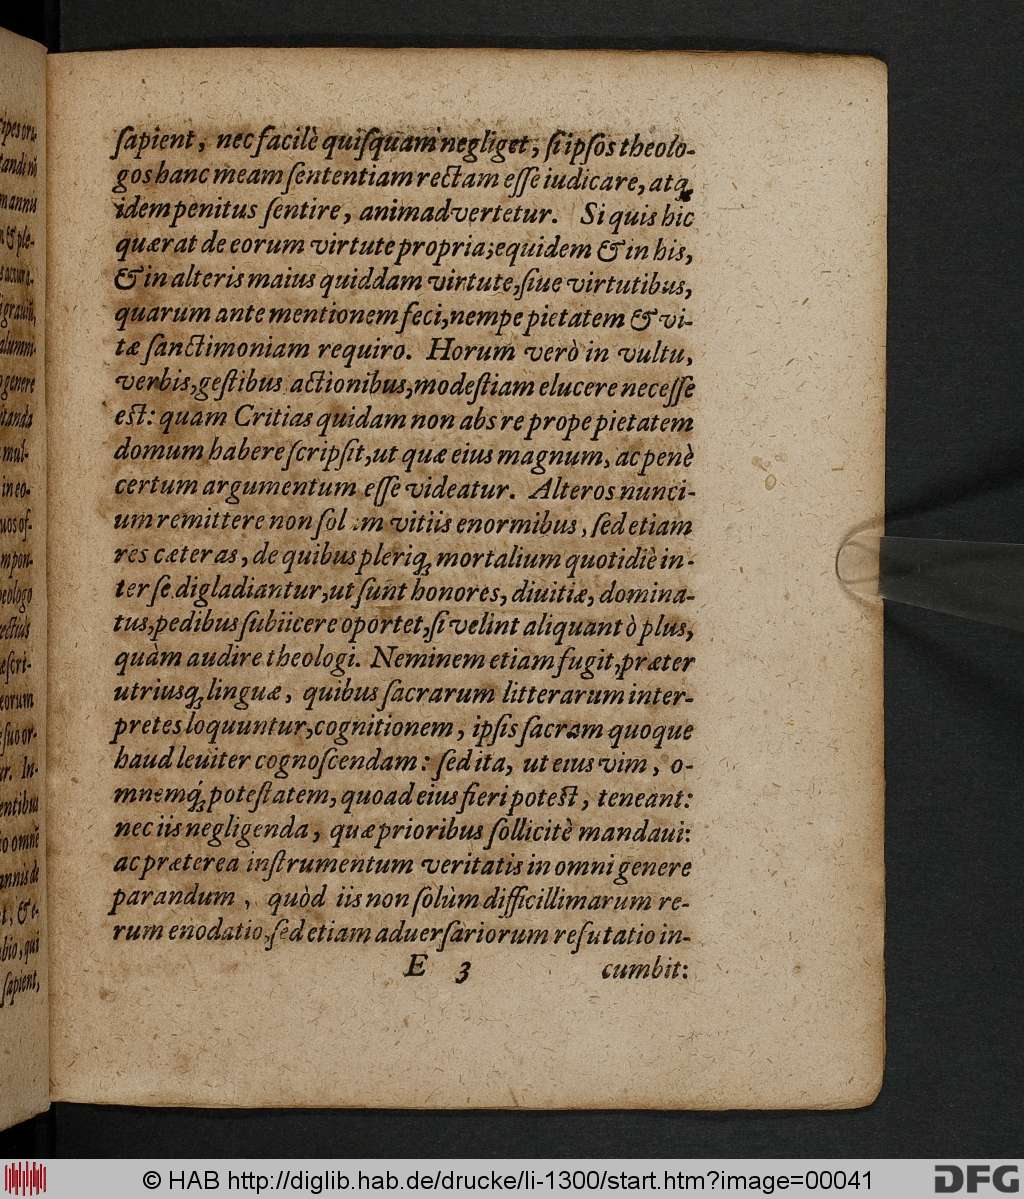 sapient, nec facilè quisquam negliget, si ipsos theolo-
gos hanc meam sententiam rectam esse iudicare, atq́;
idem penitus sentire, animadvertetur. Si quis hic
quærat de eorum virtute propria; equidem & in his,
& in alteris maius quiddam virtute, siue virtutibus,
quarum ante mentionem feci, nempe pietatem & vi-
tæ sanctimoniam requiro. Horum verò in vultu,
verbis, gestibus actionibus, modestiam elucere necesse
est: quam Critias quidam non abs re prope pietatem
domum habere scripsit, ut quæ eius magnum, ac penè
certum argumentum esse videatur. Alteros nunci-
um remittere non solum vitiis enormibus, sed etiam
res cæteras, de quibus pleriq; mortalium quotidiè in-
ter se digladiantur, ut sunt honores, diuitiæ, domina-
tus, pedibus subiicere oportet, si velint aliquantò plus,
quàm audire theologi. Neminem etiam fugit, præter
utriusq; linguæ, quibus sacrarum litterarum inter-
pretes loquuntur, cognitionem, ipsis sacram quoque
haud leuiter cognoscendam: sed ita, ut eius vim, o-
mnemq́; potestatem, quoad eius fieri potest, teneant:
nec iis negligenda, quæ prioribus sollicitè mandaui:
ac præterea instrumentum veritatis in omni genere
parandum, quòd iis non solùm difficillimarum re-
rum enodatio, sed etiam aduersariorum refutatio in-
E 3 cumbit:
sapient,
© HAB http://diglib.hab.de/drucke/li-1300/start.htm?image=00041
DFG